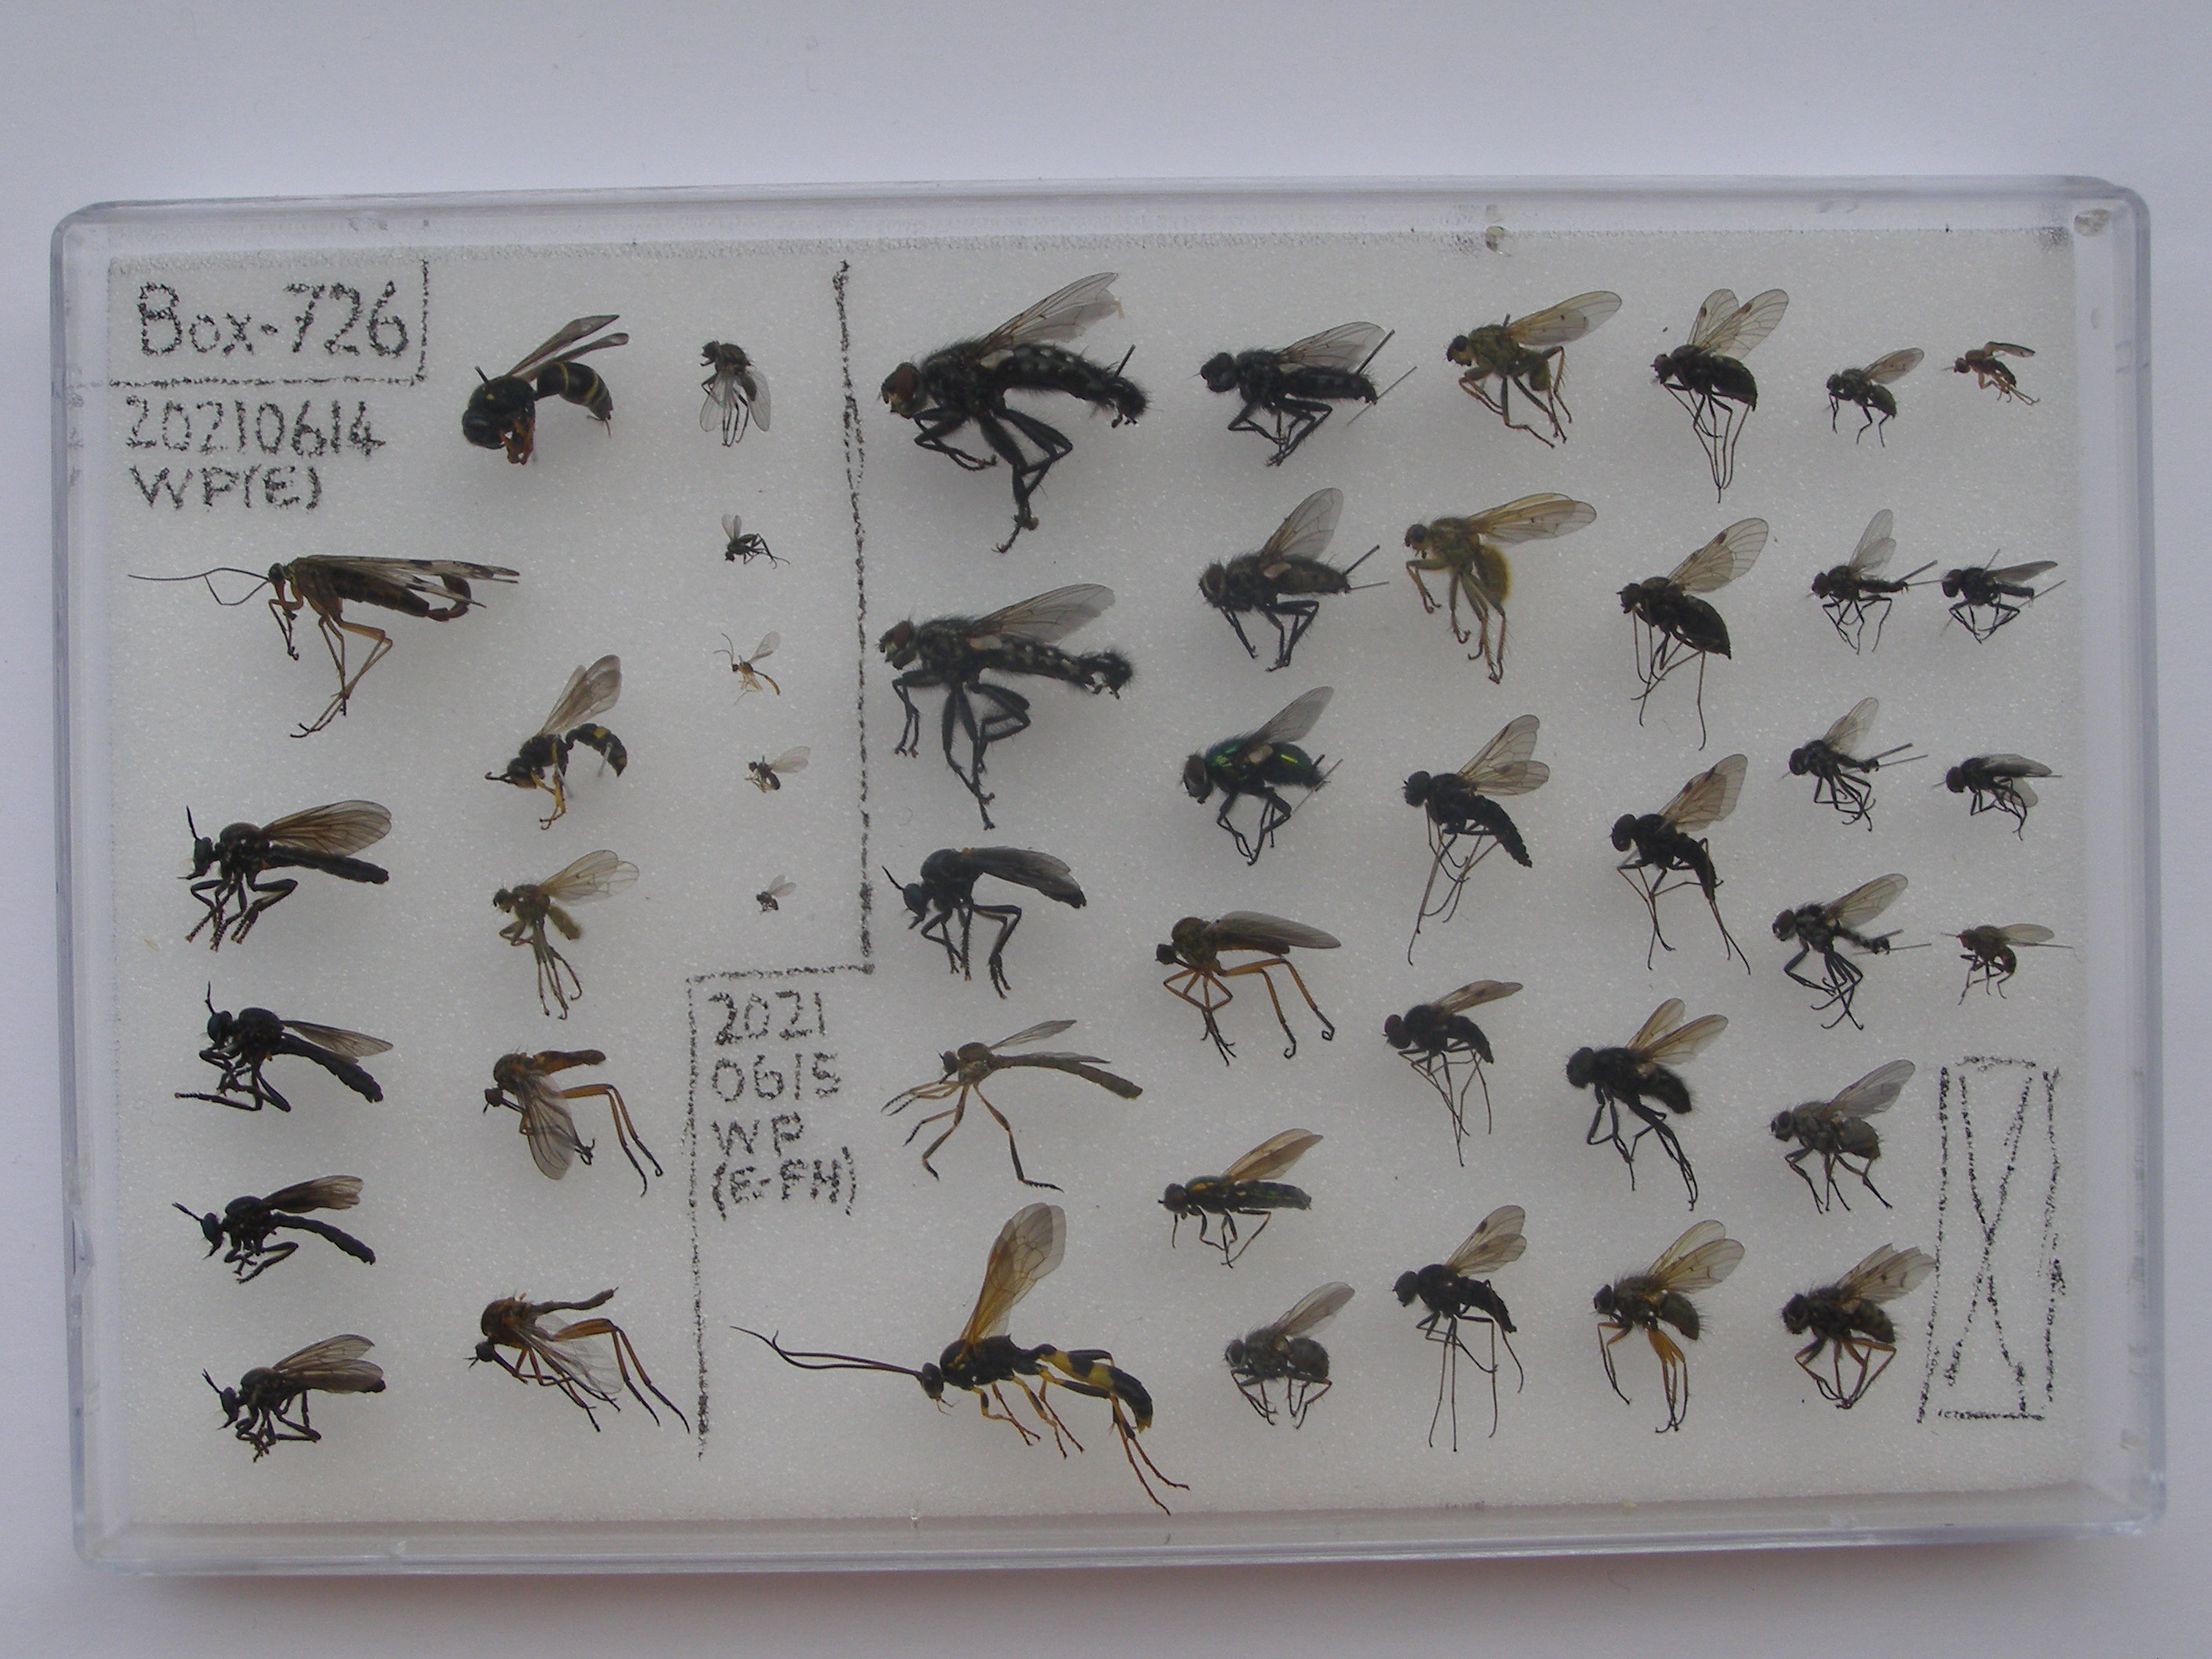 Box-726
20210614
WP(E)
2021
0615
WP